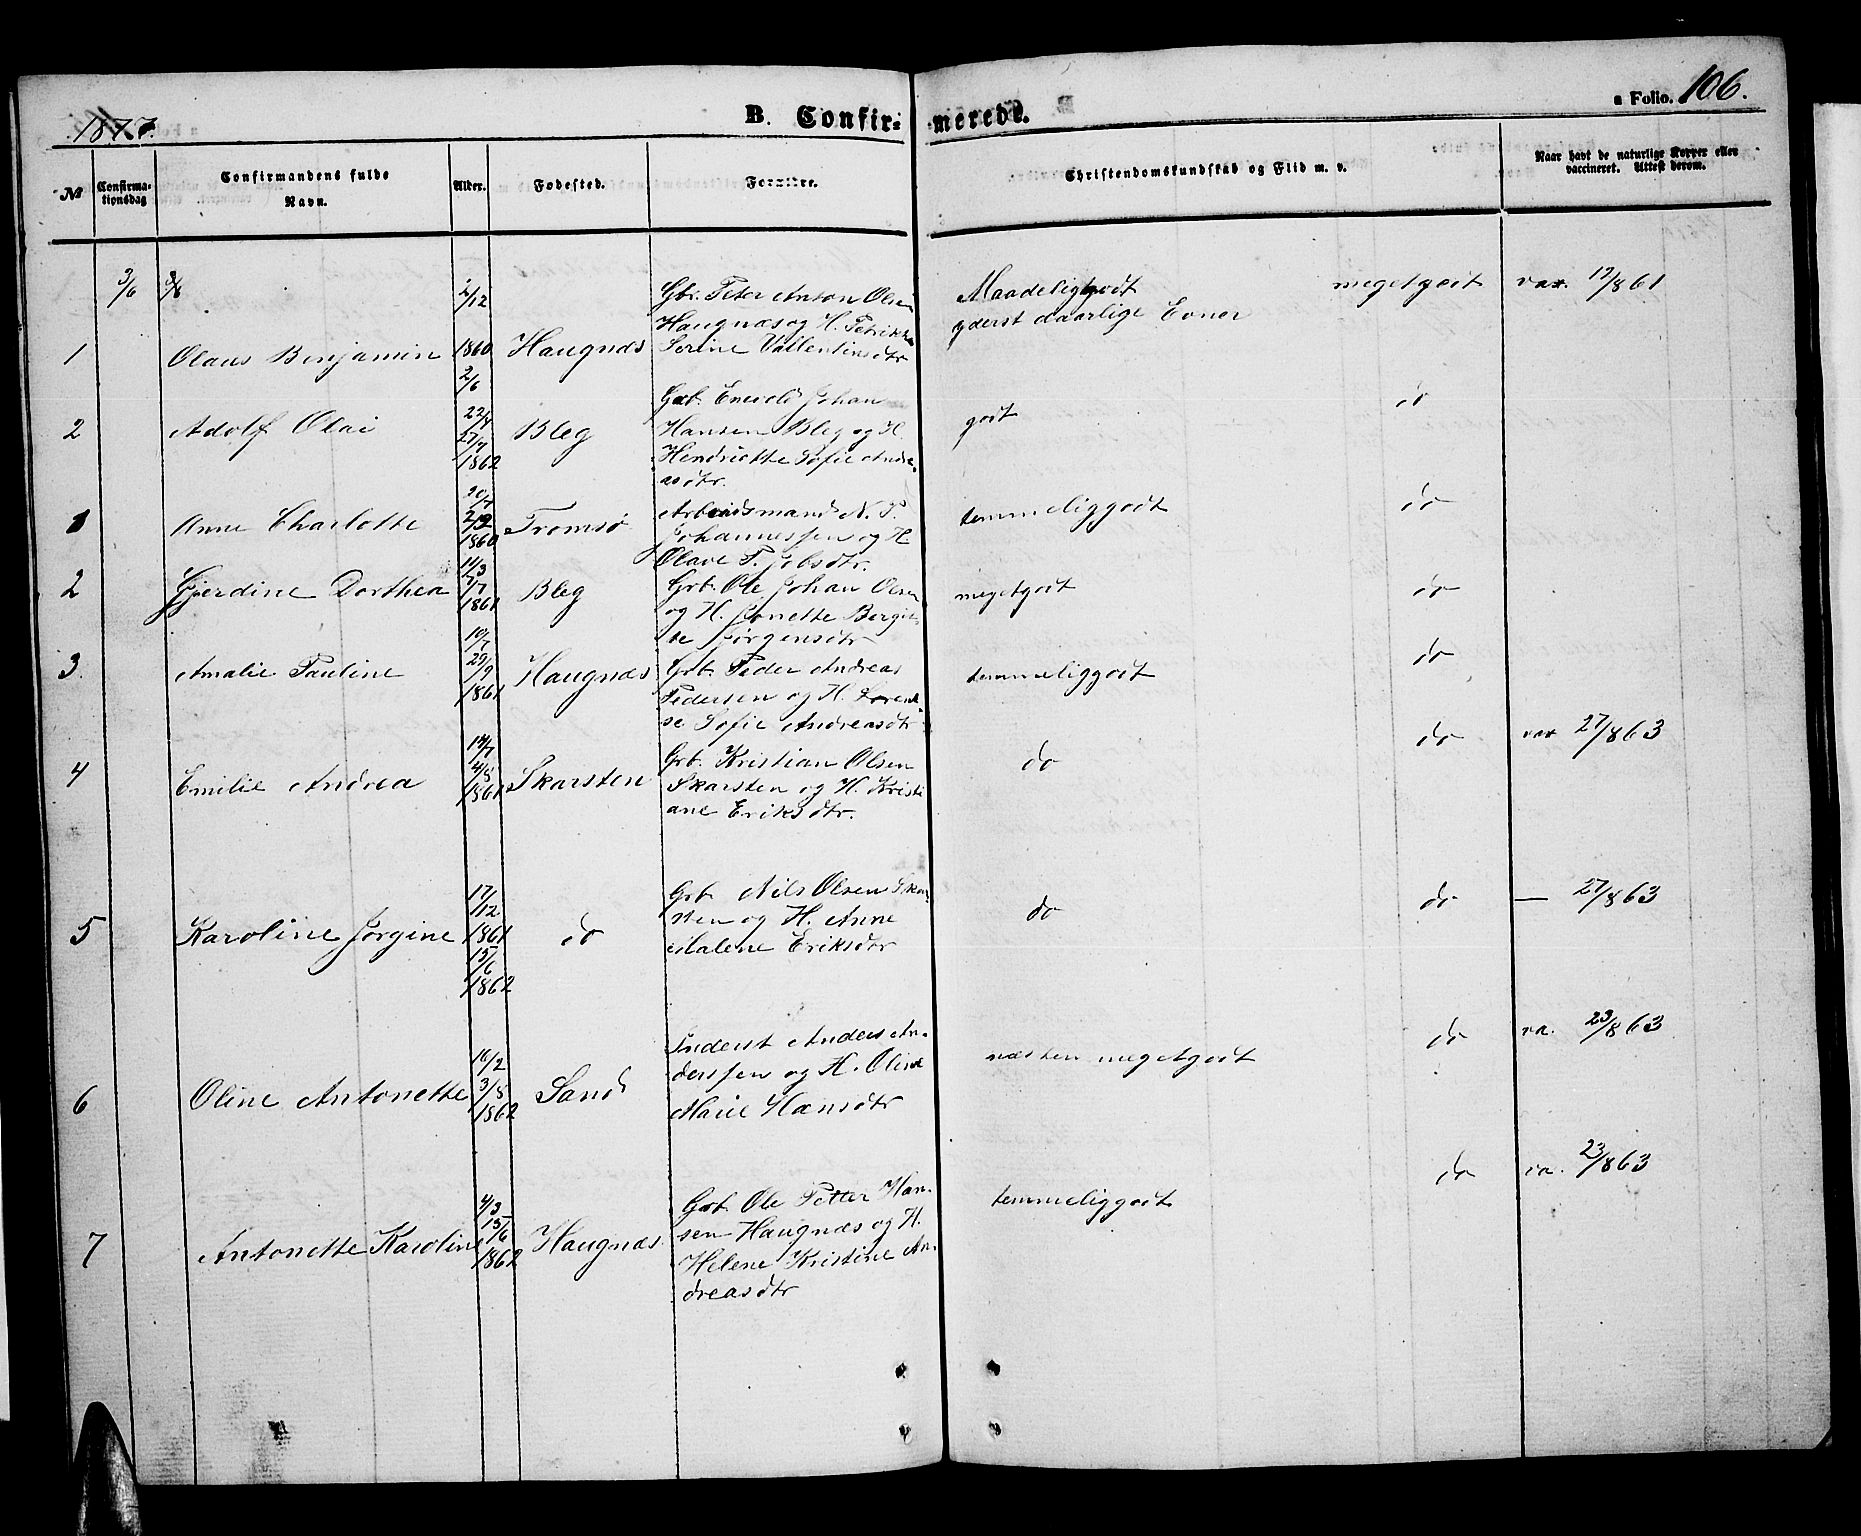 1877.
B. Confir- merede.
a Folio. 106.
No
Confirma-
tionsdag
Confirmandens fulde
Navn.
Alder.
Fødested.
Forældre.
Christendomskundskab og Flid m. v.
Naar havt de naturlige Kopper eller
vaccineret. Attest derom.
3/6
1 Olaus Benjamin 2/12 1860 2/6 Haugnæs
Gbr. Peter Anton Olsen
Haugnæs og H. Petrikke
Serine Vallentinsdtr
Maadeliggodt
yderst daarlige Evner
megetgodt
vac. 12/861
2 Adolf Olai 22/4 27/7 1862 Bleg
Gbr. Enevold Johan
Hansen Bleg og H.
Hendriette Sofie Andre-
asdtr.
godt
do
1 Anne Charlotte 1860 Tromsø
Arbeidsmand N. P.
Johannessen og H
Olave P. Jobsdtr.
temmeliggodt
do
2 Gjerdine Dorthea 11/3 7/7 1861 Bleg
Grb. Ole Johan Olsen
og H. Jonette Bergit-
te Jørgensdtr
megetgodt
do
3. Amalie Pauline 10/7 29/9 1861 Haugnæs
Grb. Peder Andreas
Pedersen og H. Lorent-
se Sofie Andreasdtr
temmeliggodt
do
4 Emilie Andrea 14/7 4/8 1861 Skarsten
Grb. Kristian Olsen
Skarsten og H. Kristi
ane Eriksdtr.
do
do
vac 27/863
5 Karoline Jørgine 17/12 1861 15/6 1862 do
Grb. Nils Olsen Skar-
sten og H. Anne
Malene Eriksdtr
do
do
— 27/863
6 Oline Antonette 16/2 3/8 1862 Sand
Inderst Anders An-
derssen og H. Oline
Marie Hansdtr
næsten megetgodt
do
va. 23/863
7 Antonette Karoline 4/3 15/6 1862 Haugnæs
Grb. Ole Petter Han-
sen Haugnæs og H.
Helene Kristine An-
dreasdtr
temmeliggodt
do
va. 23/863